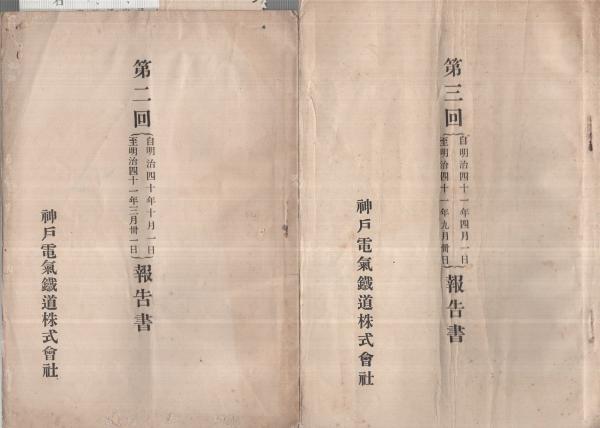 第三回
自明治四十一年四月一日
至明治四十一年九月卅日
報告書
神戸電氣鐵道株式會社
第二回
自明治四十年十月一日
至明治四十一年三月卅一日
報告書
神戸電氣鐵道株式會社